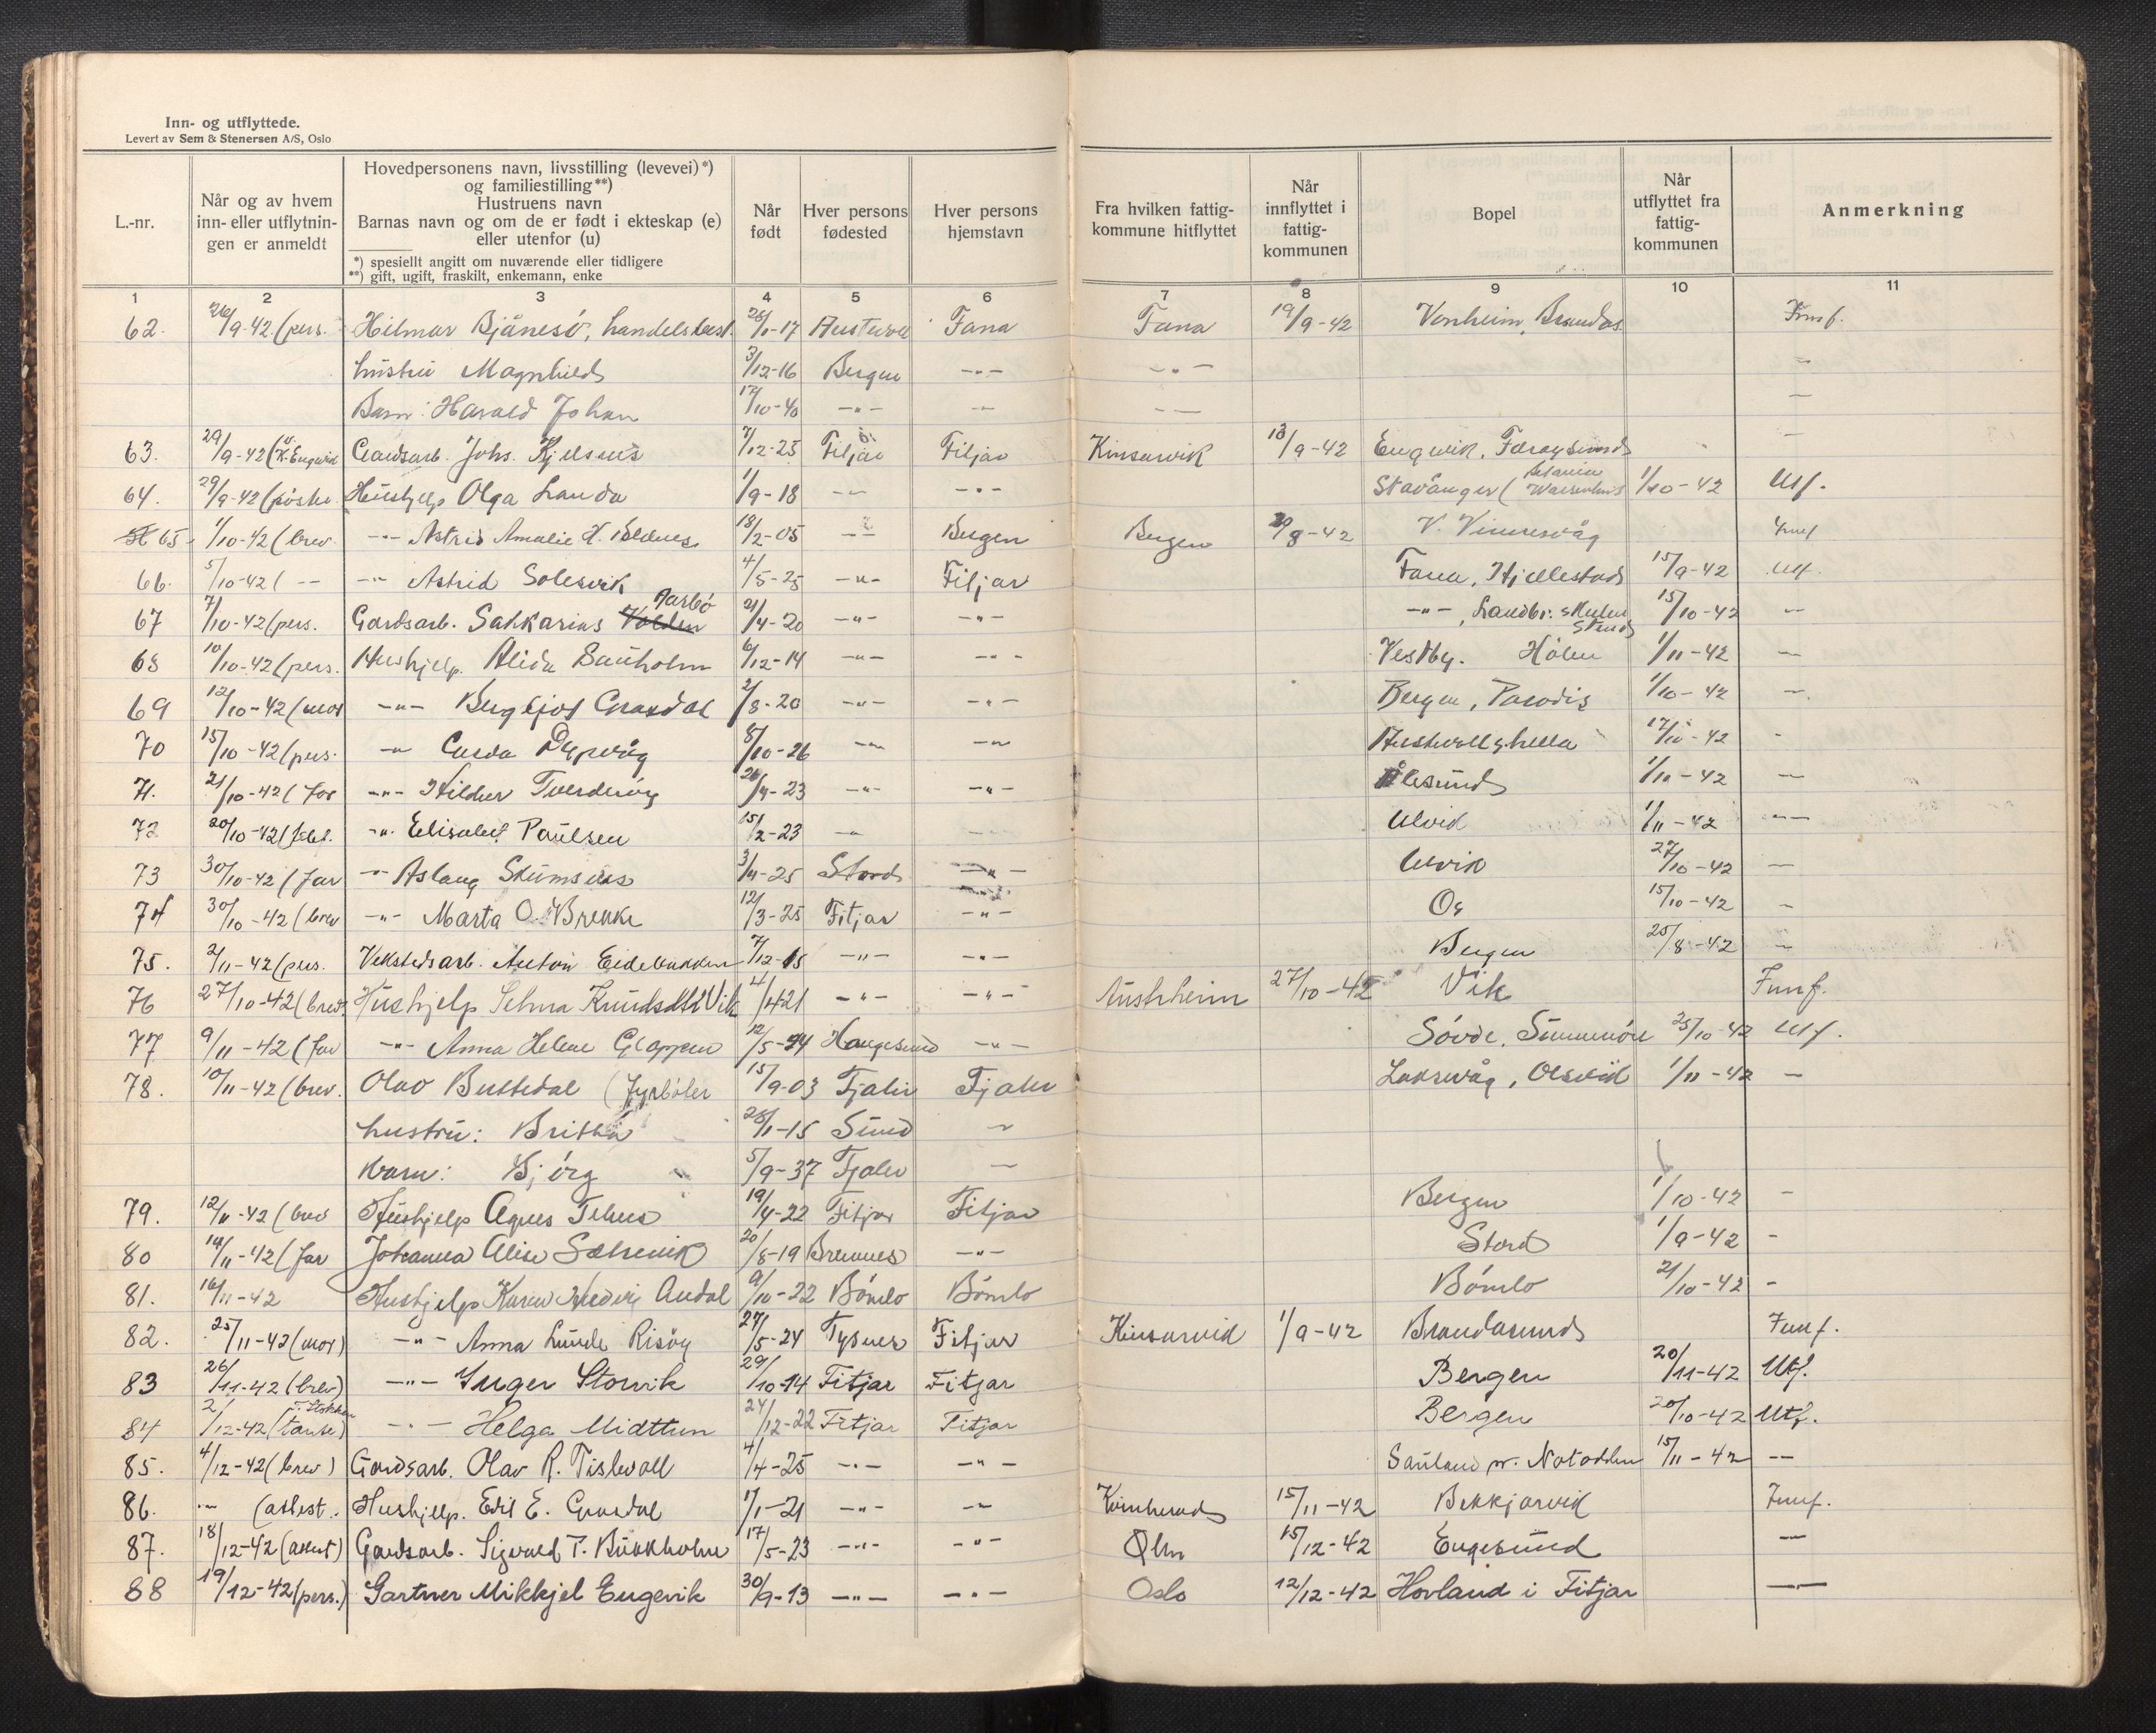 Inn- og utflyttede.
Levert av Sem & Stenersen A/S, Oslo
L.-nr.
Når og av hvem inn- eller utflytnin- gen er anmeldt
Hovedpersonens navn, livsstilling (levevei) *)
og familiestilling **)
Hustruens navn
Barnas navn og om de er født i ekteskap (e)
eller utenfor (u)
*) spesiellt angitt om nuværende eller tidligere
**) gift, ugift, fraskilt, enkemann, enke
Når født
Hver persons fødested
Hver persons hjemstavn
Fra hvilken fattig- kommune hitflyttet
Når innflyttet i fattig- kommunen
Bopel
Når utflyttet fra fattig- kommunen
Anmerkning
1 2 3 4 5 6 7 8 9 10 11
62. 26/9-42 (pers. Hilmar Bjånesö, handelsbest. 26/1-17 Fana Fana 19/9-42 Vonheim, Brandas Innf.
hustru Magnhild 3/12-16 Bergen -"- -"- -
Barn: Harald Johan 17/10-40 -"- - - - -
63. 29/9-42 (K. Engevik Gardsarb. Johs. 7/12-25 Fitjar Fitjar Kinsarvik 13/9-42 Engevik, Færøysund -
64. 29/9-42 Hushjelp Olga Landa 1/9-18 -- -"- Stavanger ( Waisenhus 1/10-42 Utf.
65 1/10-42 (brev -"- Astrid Amalie H. 18/2-05 -- Bergen Bergen 20/8-42 V. Vinnesvåg Innf
66. 5/10-42 ( -- -"- Astrid Solesvik 4/5-25 -"- Fitjar Fana, Hjellestad 15/9-42 Utf.
67 7/10-42 (pers. Gardsarb. Sakkarias Aarbö 21/4-20 -"- -"- -"-, Landbr. skulen Stend 15/10-42 -
68 10/10-42 (pers. Hushjelp. Alida 6/12-14 -"- -"- Vestby. Hölen 1/11-42 -
69 12/10-42 (mor -"- Bergljot Grasdal 2/8-20 -"- -"- Bergen, Paradis 1/10-42 -
70 15/10-42 (pers. -"- Dypvåg 8/10-26 -"- -"- Austevollshella 17/10-42 -
71. 21/10-42 (far -"- Hildur -23 -"- -"- Ålesund 1/10-42 -
72 20/10-42 -"- Elisabet Paulsen 15/2-23 - Ulvik 1/11-42 -"-
73 30/10-42 (far -"- Aslaug 3/11-25 Stord -"- Ulvik 27/10-42 -
74 30/10-42 (brev -"- Marta O. Brekke 12/3-25 Fitjar -"- Os 15/10-42 -
75. 2/11-42 (pers. Verkstedsarb. Anton Eidebakken 7/12-15 -"- -"- Bergen 25/8-42 -
76 27/10-42 (brev. Hushjelp Selma Knudsdtr Vik -21 -"- -"- Austrheim 27/10-42 Vik Innf.
77 9/11-42 (far -"- Anna Helene Gloppen 12/5-24 Haugesund -"- Sövde, Sunnmöre 25/10-42 Utf.
78. 10/11-42 (brev. Olav (fyrböter 15/9-03 Fjaler Fjaler Laksevåg, Olsvik 1/11-42 -
hustru: Britha 28/11-15 Sund -
barn: Bjørg 5/9-37 Fjaler -
79. 12/11-42 (brev Hushjelp Agnes 19/4-22 Fitjar Fitjar Bergen 1/10-42 -
80 14/11-42 (far Johanna Alise Sælevik 20/8-19 Bremnes -"- Stord 1/9-42 -
81. 16/11-42 Hushjelp Karen Hedvig Andal 9/10-22 Bömlo Bömlo Bömlo 21/10-42 -
82. 25/11-42 (mor) -"- Anna Lunde Risöy 27/5-24 Tysnes Fitjar Kinsarvik 1/9-42 Brandasund Innf.
83 26/11-42 (brev) -"- Inger Storvik 29/10-14 Fitjar Fitjar Bergen 20/11-42 Utf.
84 2/12-42 (tante) -"- Helga Midttun 24/12-22 Fitjar Fitjar Bergen 20/10-42 Utf.
85. 4/12-42 (brev) Gardsarb. Olav R. Tislevoll 4/4-25 -"- -"- Sauland pr. Notodden 15/11-42 --
86. -"- (attest. Hushjelp. Edit E. Grasdal 1/1-21 -"- -"- Kvinherad 15/11-42 Bekkjarvik Innf.
87. 18/12-42 (attest) Gardsarb. Sigvald T. Bukkholm 17/5-23 -"- -"- Ølen 15/12-42 Engesund -
88 19/12-42 (pers.) Gartner Mikkjel Engevik 30/9-13 -"- -"- Oslo 12/12-42 Hovland i Fitjar -